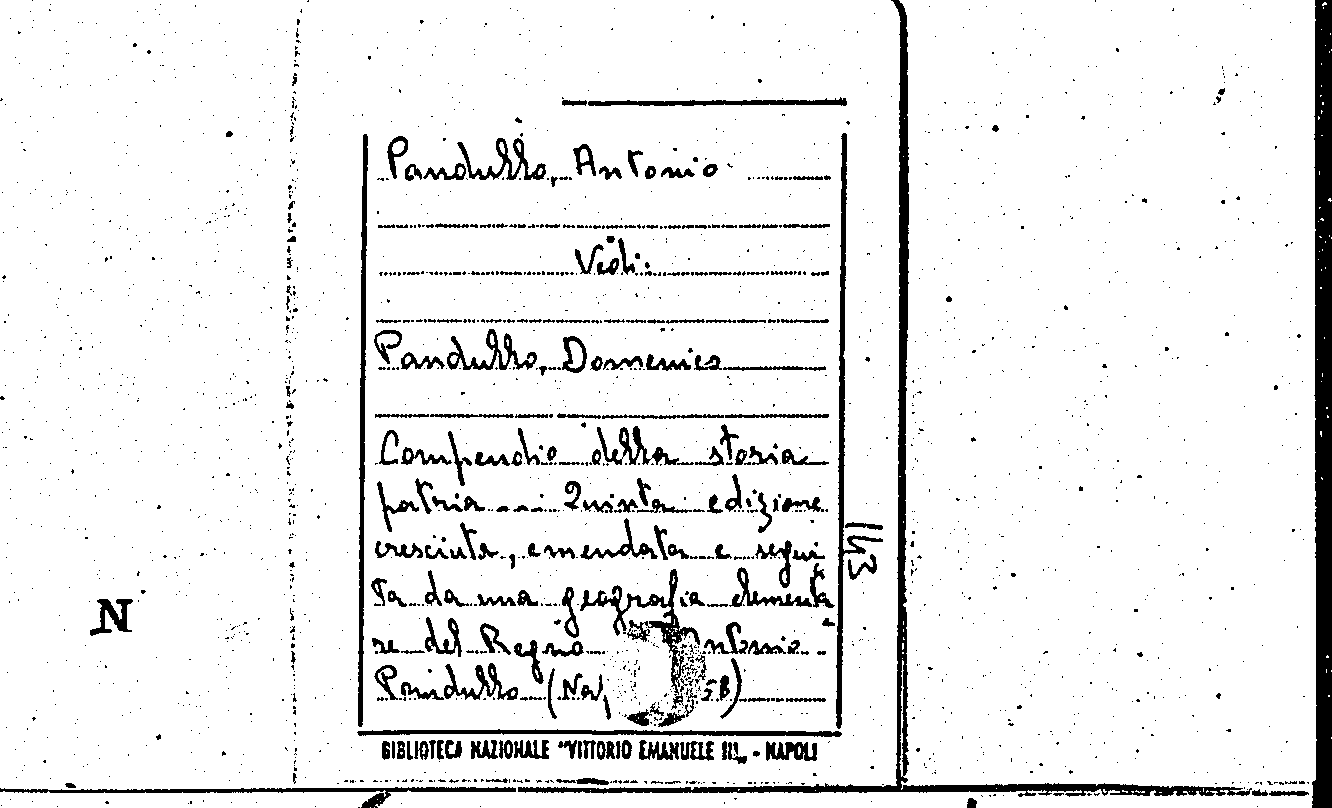 Pandullo, Antonio
Vedi:
Pandullo, Domenico
Compendio della storia
patria ... Quinta edizione
cresciuta, emendata e segui
ta da una geografia elementa
re del Regno Antonio
Pandullo (Na 58)
143
N
BIBLIOTECA NAZIONALE "VITTORIO EMANUELE III" - NAPOLI